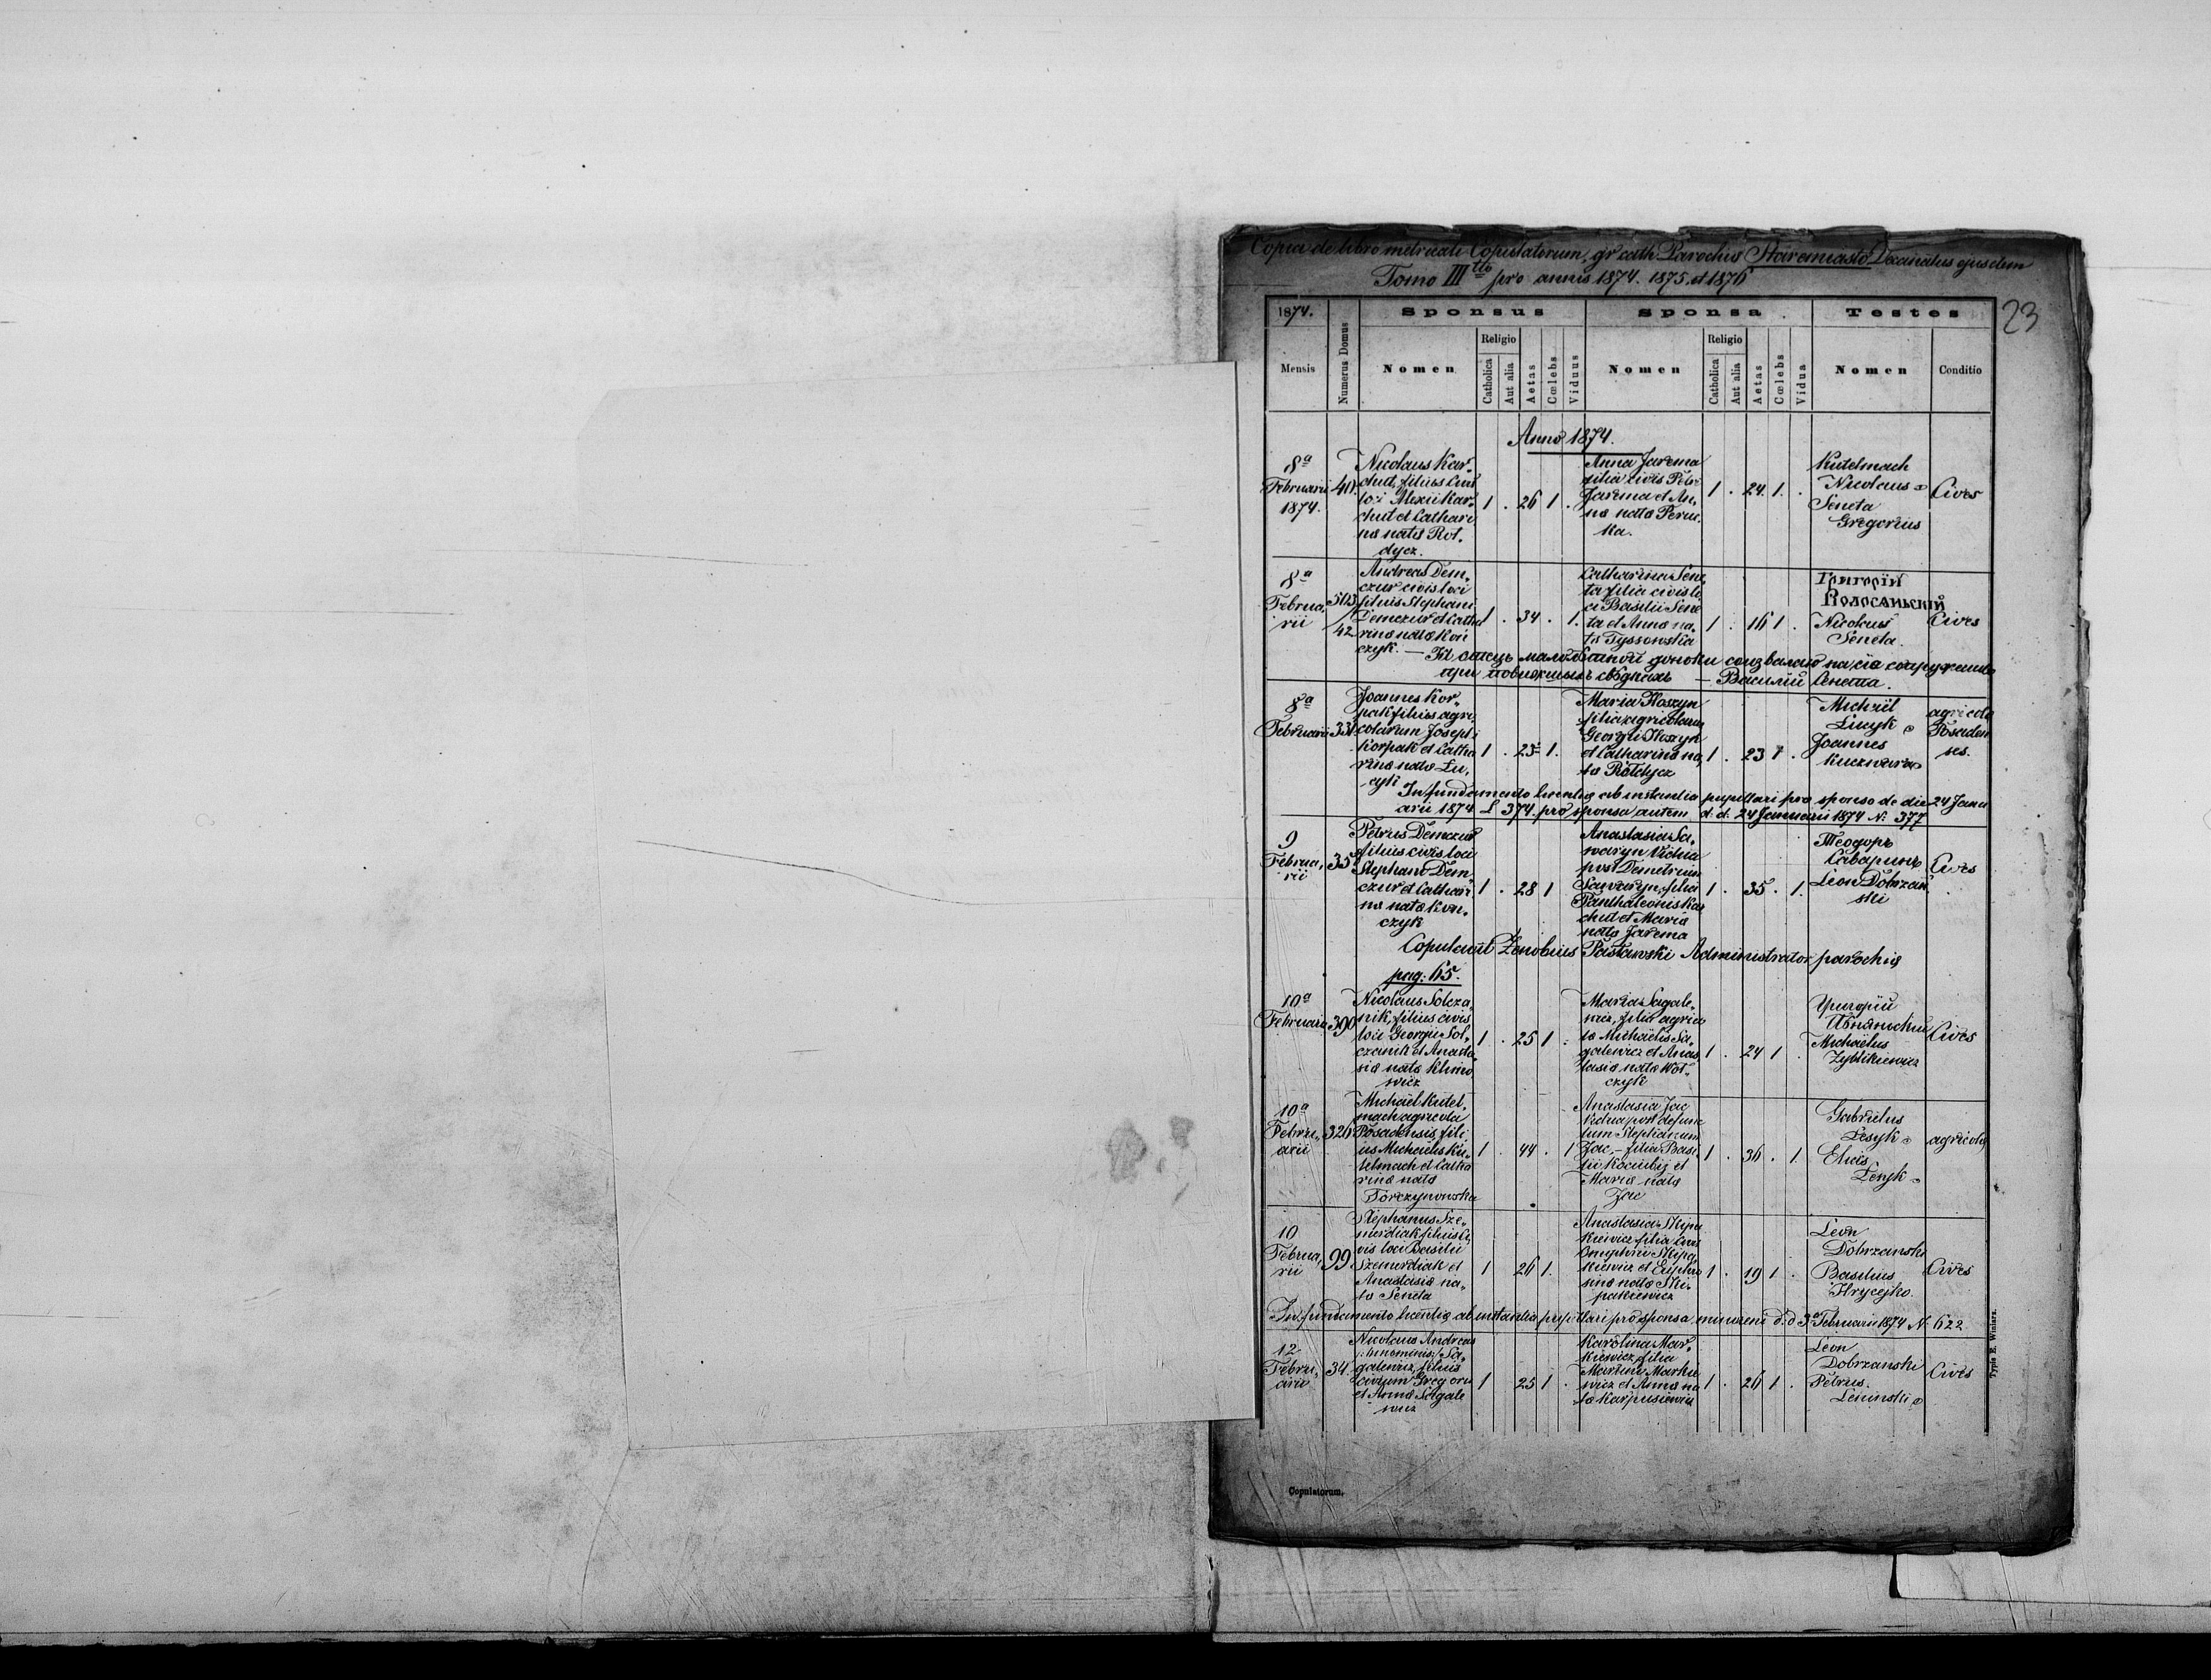 Copia de libro metricali Copulatorum, gr cath Parochiæ Staremiasto Decanatus ejusdem
Tomo III tio pro annis 1874. 1875 et 1876
23
1874.
Sponsus
Sponsa
Testes
Mensis
Numerus Domus
Nomen
Religio
Catholica
Aut alia
Aetas
Cœlebs
Viduus
Nomen
Religio
Catholica
Aut alia
Aetas
Cœlebs
Vidua
Nomen
Conditio
Anno 1874.
8a
Februarii
1874.
Nicolaus Kar-
chut, filius civis
loci Alexii Kar-
chut et Cathari
næ natæ Rot-
dycz.
1 . 26 1 .
Anna Jarema
filia civis Petri
Jarema et An-
næ natæ
ka.
1 . 24. 1. .
Kutelmach
Nicolaus
Seneta
Gregorius
Cives
8a
Februa,
rii
503/
42
Andreas Dem-
czur civis loci
filius Stephani
Demczur et Catha
rinæ natæ Kon
czyk.
1 . 34 . 1.
Catharina Sene
ta filia civis lo,
ci Basilii Sene
ta et Annæ na-
tæ Tyssowska
1 . 16 1 .
Григорій
Волосаньскій
Nicolaus
Seneta.
Cives
отець малолѣтной доньки соизваляю на сіе
при свѣдкахъ — Василій Сенета.
8a
Februarii
331
Joannes Kor-
pak filius agri,
colarum Josephi
Korpak et Catha
rinæ natæ Lu,
cyk
1 . 25 1.
Maria Płoszyn
filia agricolarum
Georgii Płoszyn
et Catharinæ na,
tæ Rotdycz
1 . 23 1 .
Michaël
Lucyk
Joannes
Kuczwara
agricolæ
Posaden
ses.
In fundamento licentiæ ab instantia pupillari pro sponso de die 24 Janu
arii 1874 L 374. pro sponsa autem d: d: 24 Januarii 1874 N: 377
9
Februa,
rii
35
Petrus Demczur
filius civis loci
Stephano Dem
czur et Cathari,
næ natæ Kon,
czyk
1 . 28 1
Anastasia Sa,
waryn Vidua
post Demetrium
Sawaryn, filia
Panthaleonis Kar
chut et Mariæ
natæ Jarema
1 . 35 . 1.
Теодоръ
Саваринъ
Leon Dobrzań
ski
Cives
Copulavit Zenobius Pasławski Administrator parochiæ
pag: 65.
10a
Februarii
390
Nicolaus Solcza
nik filius civis
loci Georgii Sol,
czanik et Anasta,
siæ natæ Klimo
wicz
1 . 25 1 .
Maria Sagale,
wicz, filia agrico
læ Michaëlis Sa,
galewicz et Anas
tasiæ natæ Woł-
czyk
1 . 24 1 .
Григорій
Michaëlus
Zyblikiewicz
Cives
10a
Febru,
arii
326
Michaël Kutel,
mach agricola
Posadensis fili
us Michaëlis Ku,
telmach et Catha
rinæ natæ
Torczynowska
1 . 44 . 1
Anastasia Jac
Vidua post defunc
tum Stephanum
Jac, – filia Basi
lii Kociubij et
Mariæ natæ
Jac
1 . 36 . 1.
Gabrielus
Lesyk
Elias
Lesyk
agricolæ
10
Februa,
rii
99
Stephanus Sze,
merdiak filius ci,
vis loci Basilii
Szemerdiak et
Anastasiæ na,
tæ Seneta
1 26 1.
Anastasia Skipa
kiewicz filia civis
Onuphrii Skipa,
kiewicz et Euphro
sinæ natæ Ski-
pakiewicz
1 . 19 1 .
Leon
Dobrzanski
Basilius
Hrycejko.
Cives
In fundamento licentiæ ab instantia pupillari pro sponsa minoreni d: d 3a Februarii 1874 N. 622
12
Febru,
arii
34.
Nicolaus Andreas
/: binominis :/ Sa,
galewicz, filius
civium Gregorii
et Annæ Sagale
wicz
1 25 1 .
Karolina Mar,
kiewicz, filia
Martini Markie
wicz et Annæ na
tæ Karpusiewicz
1 . 26 1 .
Leon
Dobrzanski
Petrus
Leninski
Cives
Typis E. Winiarz.
Copulatorum.